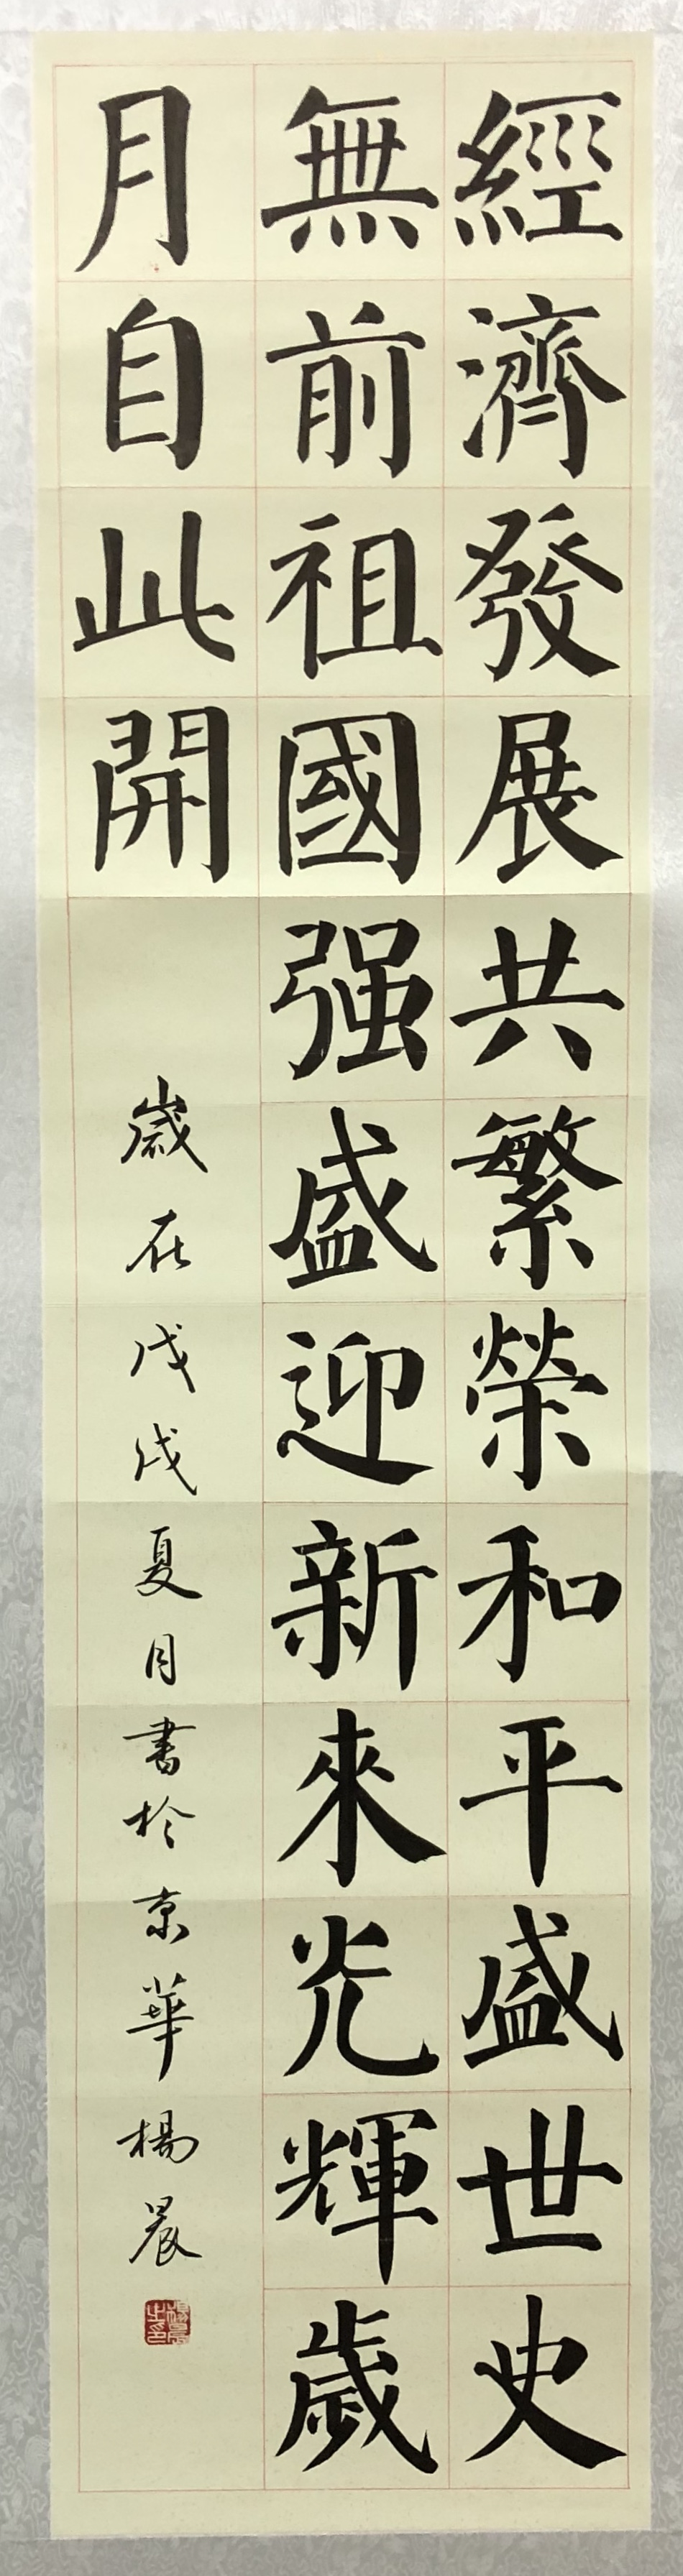 經濟發展共繁榮和平盛世史
無前祖國强盛迎新來光輝歲
月自此開
歲在戊戌夏月書於京華楊晨
楊晨之印